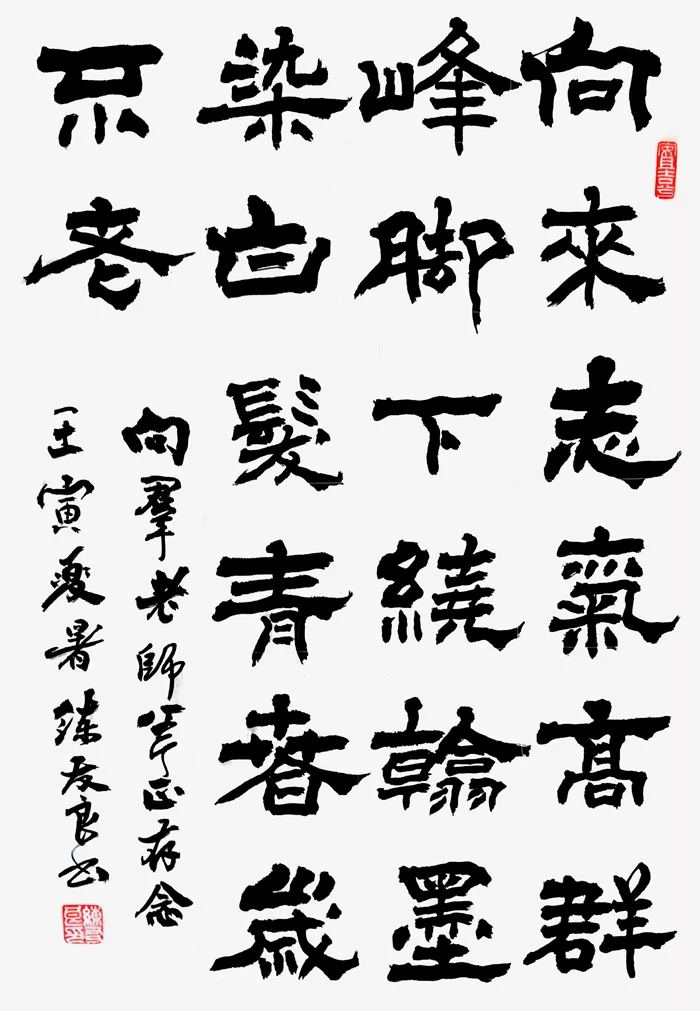 向來志氣高群
峰脚下繞翰墨
染白髮青春歲
不老
向羣老師斧正存念
壬寅夏暑練友良书